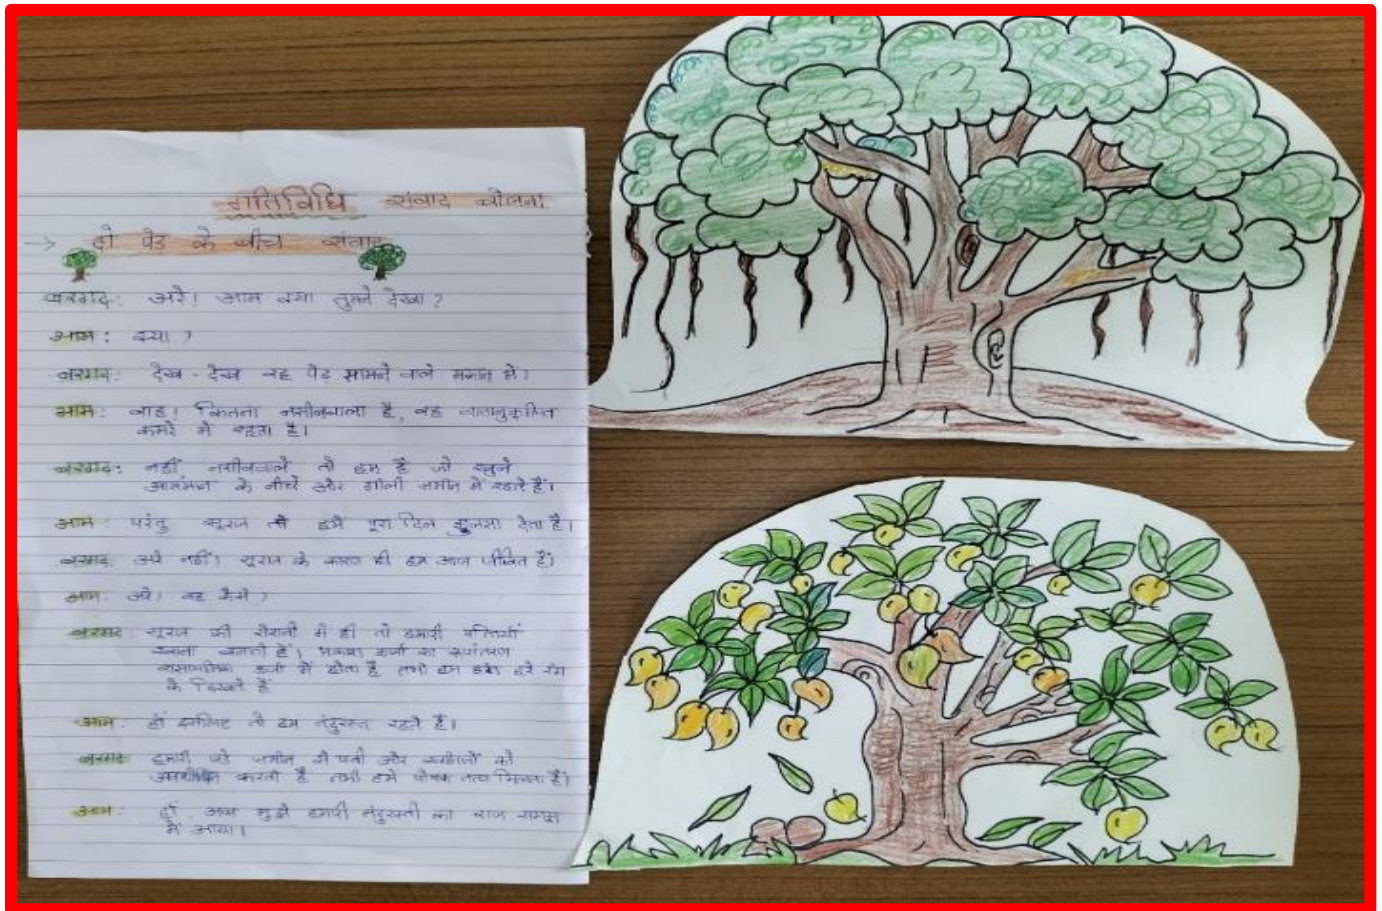 गतिविधि संवाद बोलना
→ दो पेड़ के बीच संवाद
बरगद: अरे! आम क्या तुमने देखा?
आम: क्या?
बरगद: देख-देख वह पेड़ सामने वाले मकान में।
आम: वाह! कितना नसीबवाला है, वह वातानुकूलित
कमरे में रहता है।
बरगद: नहीं, नसीबवाले तो हम है जो खुले
आसमान के नीचे और गीली जमीन में रहते हैं।
आम: परंतु सूरज तो हमें पूरा दिन झुलसा देता है।
बरगद: अरे नहीं! सूरज के कारण ही हम आज जीवित हैं।
आम: अरे! वह कैसे?
बरगद: सूरज की रोशनी में ही तो हमारी पत्तियाँ
खाना बनाती है। प्रकाश ऊर्जा का रूपांतरण
रासायनिक ऊर्जा में होता है तभी हम हरे रंग
के दिखते हैं
आम: हाँ इसलिए तो हम तंदुरस्त रहते हैं।
बरगद: हमारी जड़े जमीन से पानी और खनीजों को
अवशोषित करती है तभी हमें पोषक तत्व मिलता है।
आम: हाँ, अब मुझे हमारी तंदुरस्ती का राज समझ
में आया।